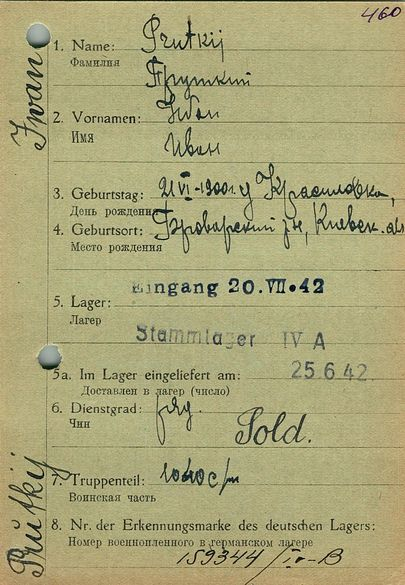 460
Iwan
1. Name: Prutkij
Фамилия
Пруткий
2. Vornamen: Iwan
Имя
Иван
3. Geburtstag: 21 VI-1900г. у Красиловка,
День рождения
4. Geburtsort: Броварский р-н, Киевск. обл
Место рождения
Eingang 20.VII.42
5. Lager:
Лагерь
Stammlager IV A
5a. Im Lager eingeliefert am: 25 6 42.
Доставлен в лагер (число)
6. Dienstgrad: ряд.
Чин
Sold.
7. Truppenteil: 1040 с/п
Воинская часть
8. Nr. der Erkennungsmarke des deutschen Lagers:
Номер военнопленного в германском лагере
159344/IV-B
Prutkij